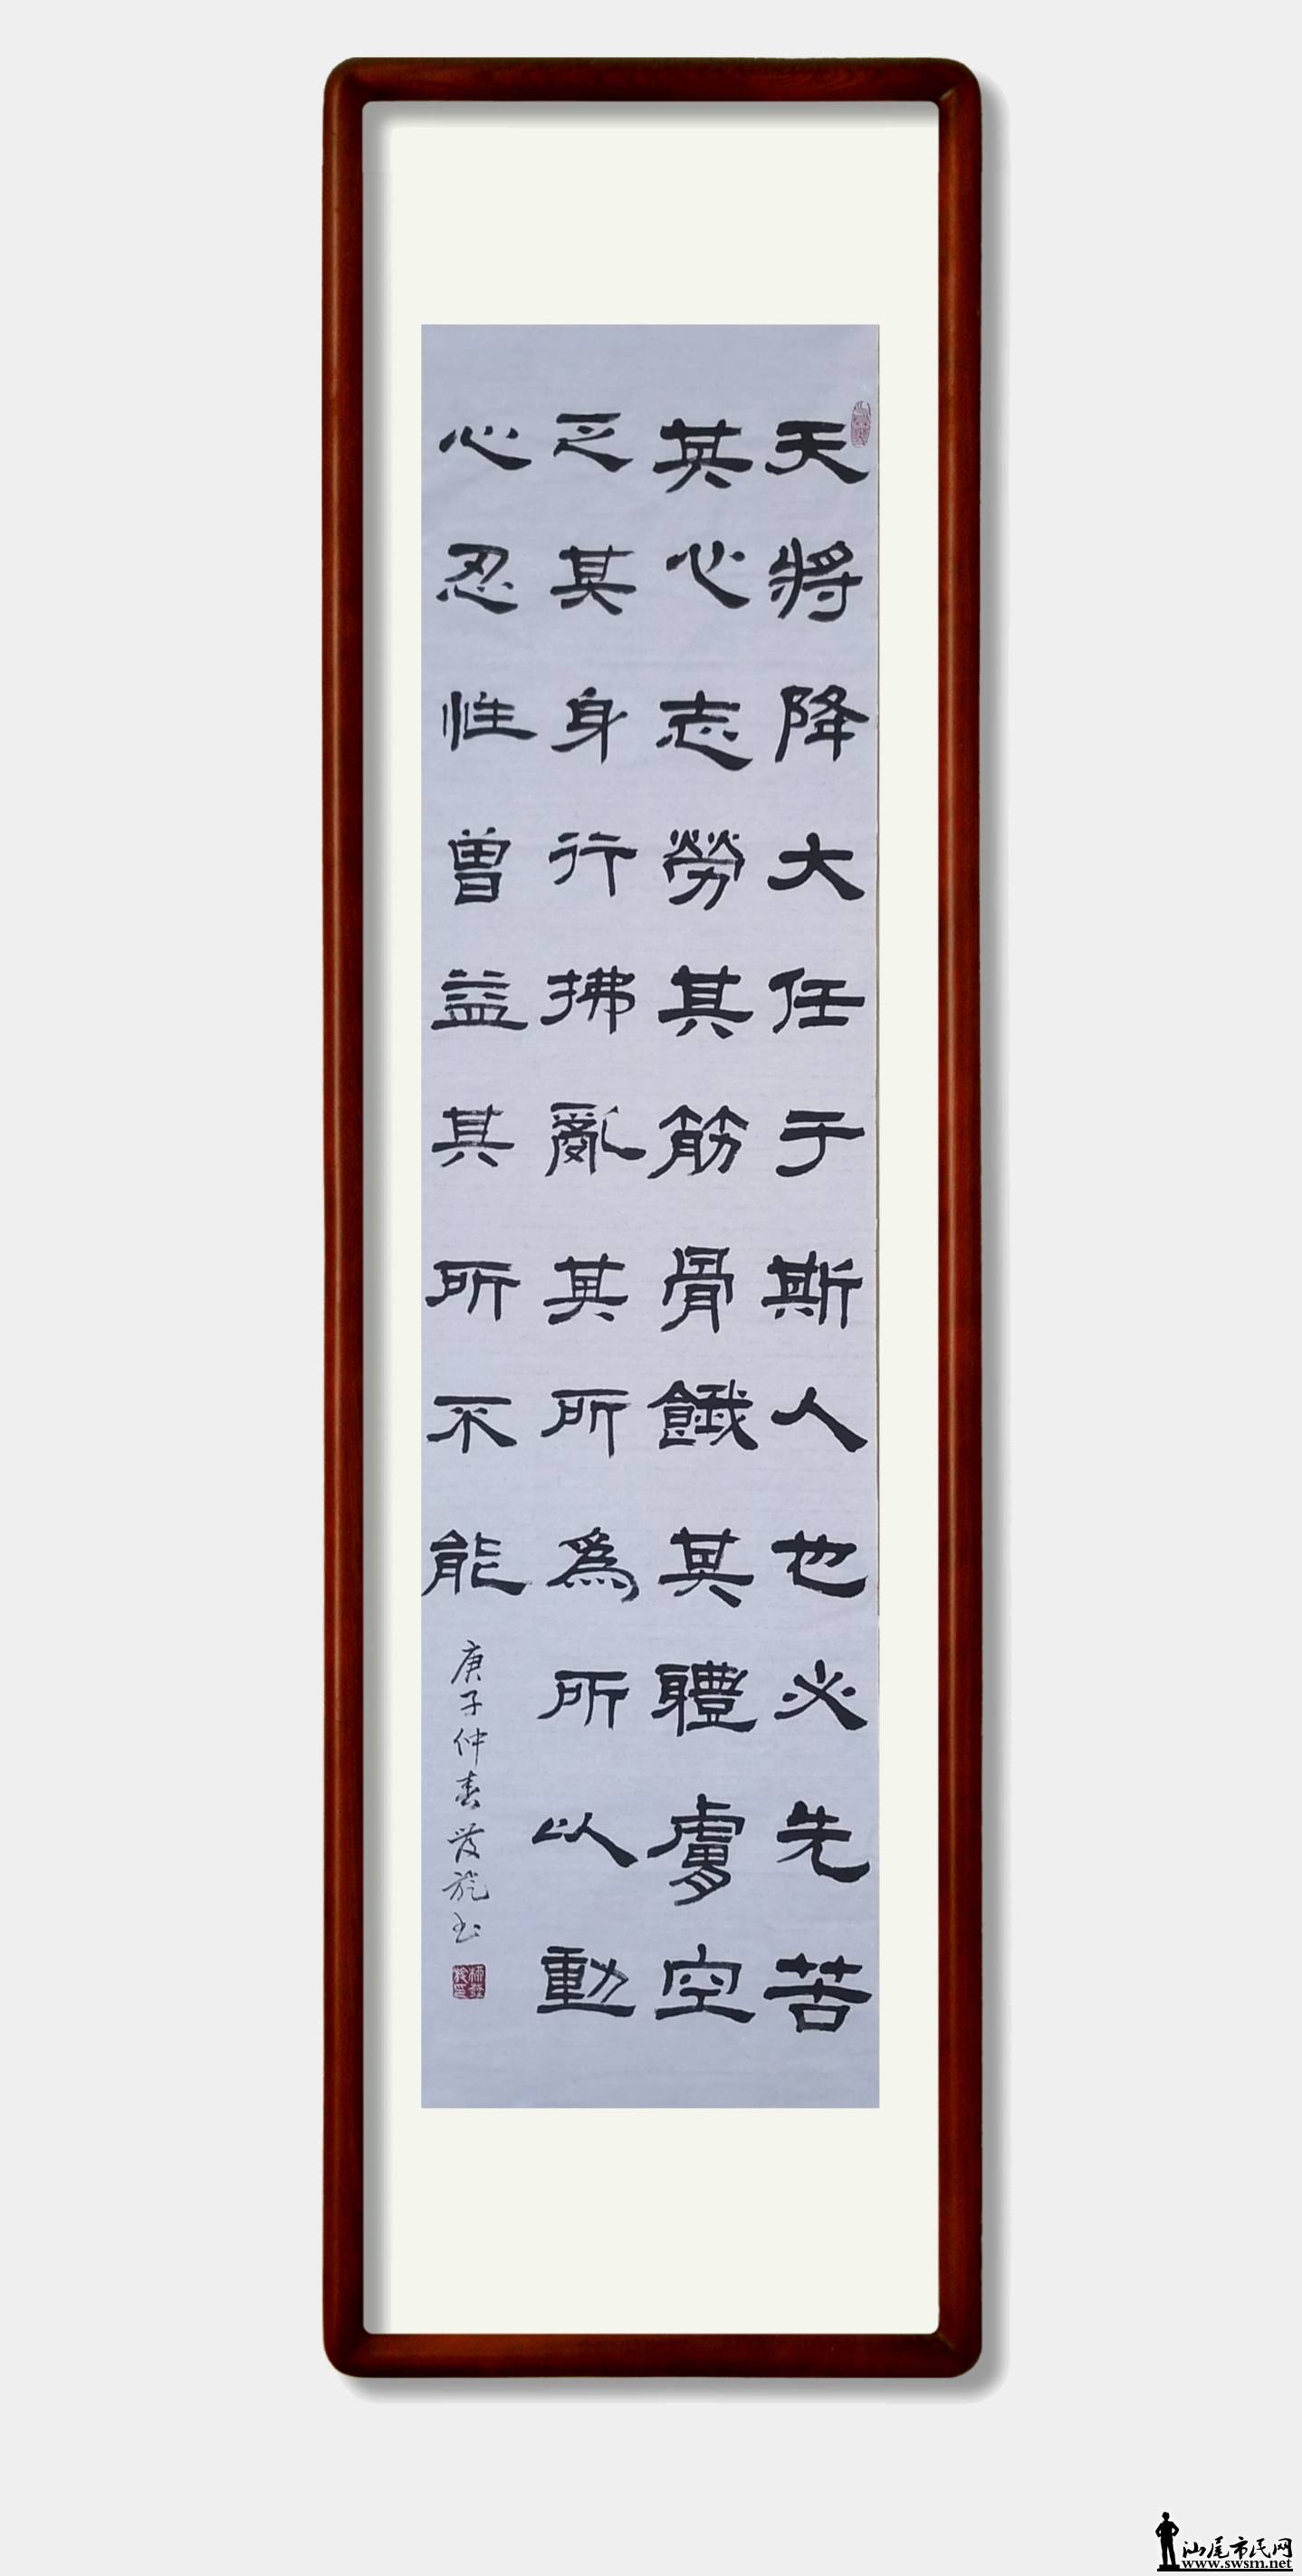 天將降大任于斯人也必先苦
其心志勞其筋骨餓其體膚空
乏其身行拂亂其所為所以動
心忍性曾益其所不能
庚子仲春發旎书
汕尾市民网
www.swsm.net